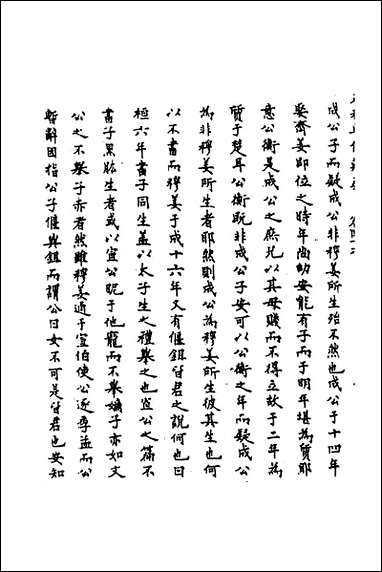 成公子而疑成公非穆姜所生殆不然也成公于十四年
娶齊姜即位之時年尚幼安能有子而于明年堪為質耶
意公衡是成公之庶兄以其母賤而不得立故于二年為
質于楚耳公衡既非成公子安可以公衡之年而疑成公
為非穆姜所生者耶然則成公為穆姜所生彼其生也何
以不書而穆姜于成十六年又有偃鉏皆君之說何也曰
桓六年書子同生蓋以太子生之禮舉之也宣公之篇不
書子黑肱生者或以宣公昵于他寵而不舉嬌子亦如文
公之不舉子赤者然雖穆姜通于宣伯使公逐季孟而公
暫辭因指公子偃與鉏而謂公曰女不可是皆君也安知